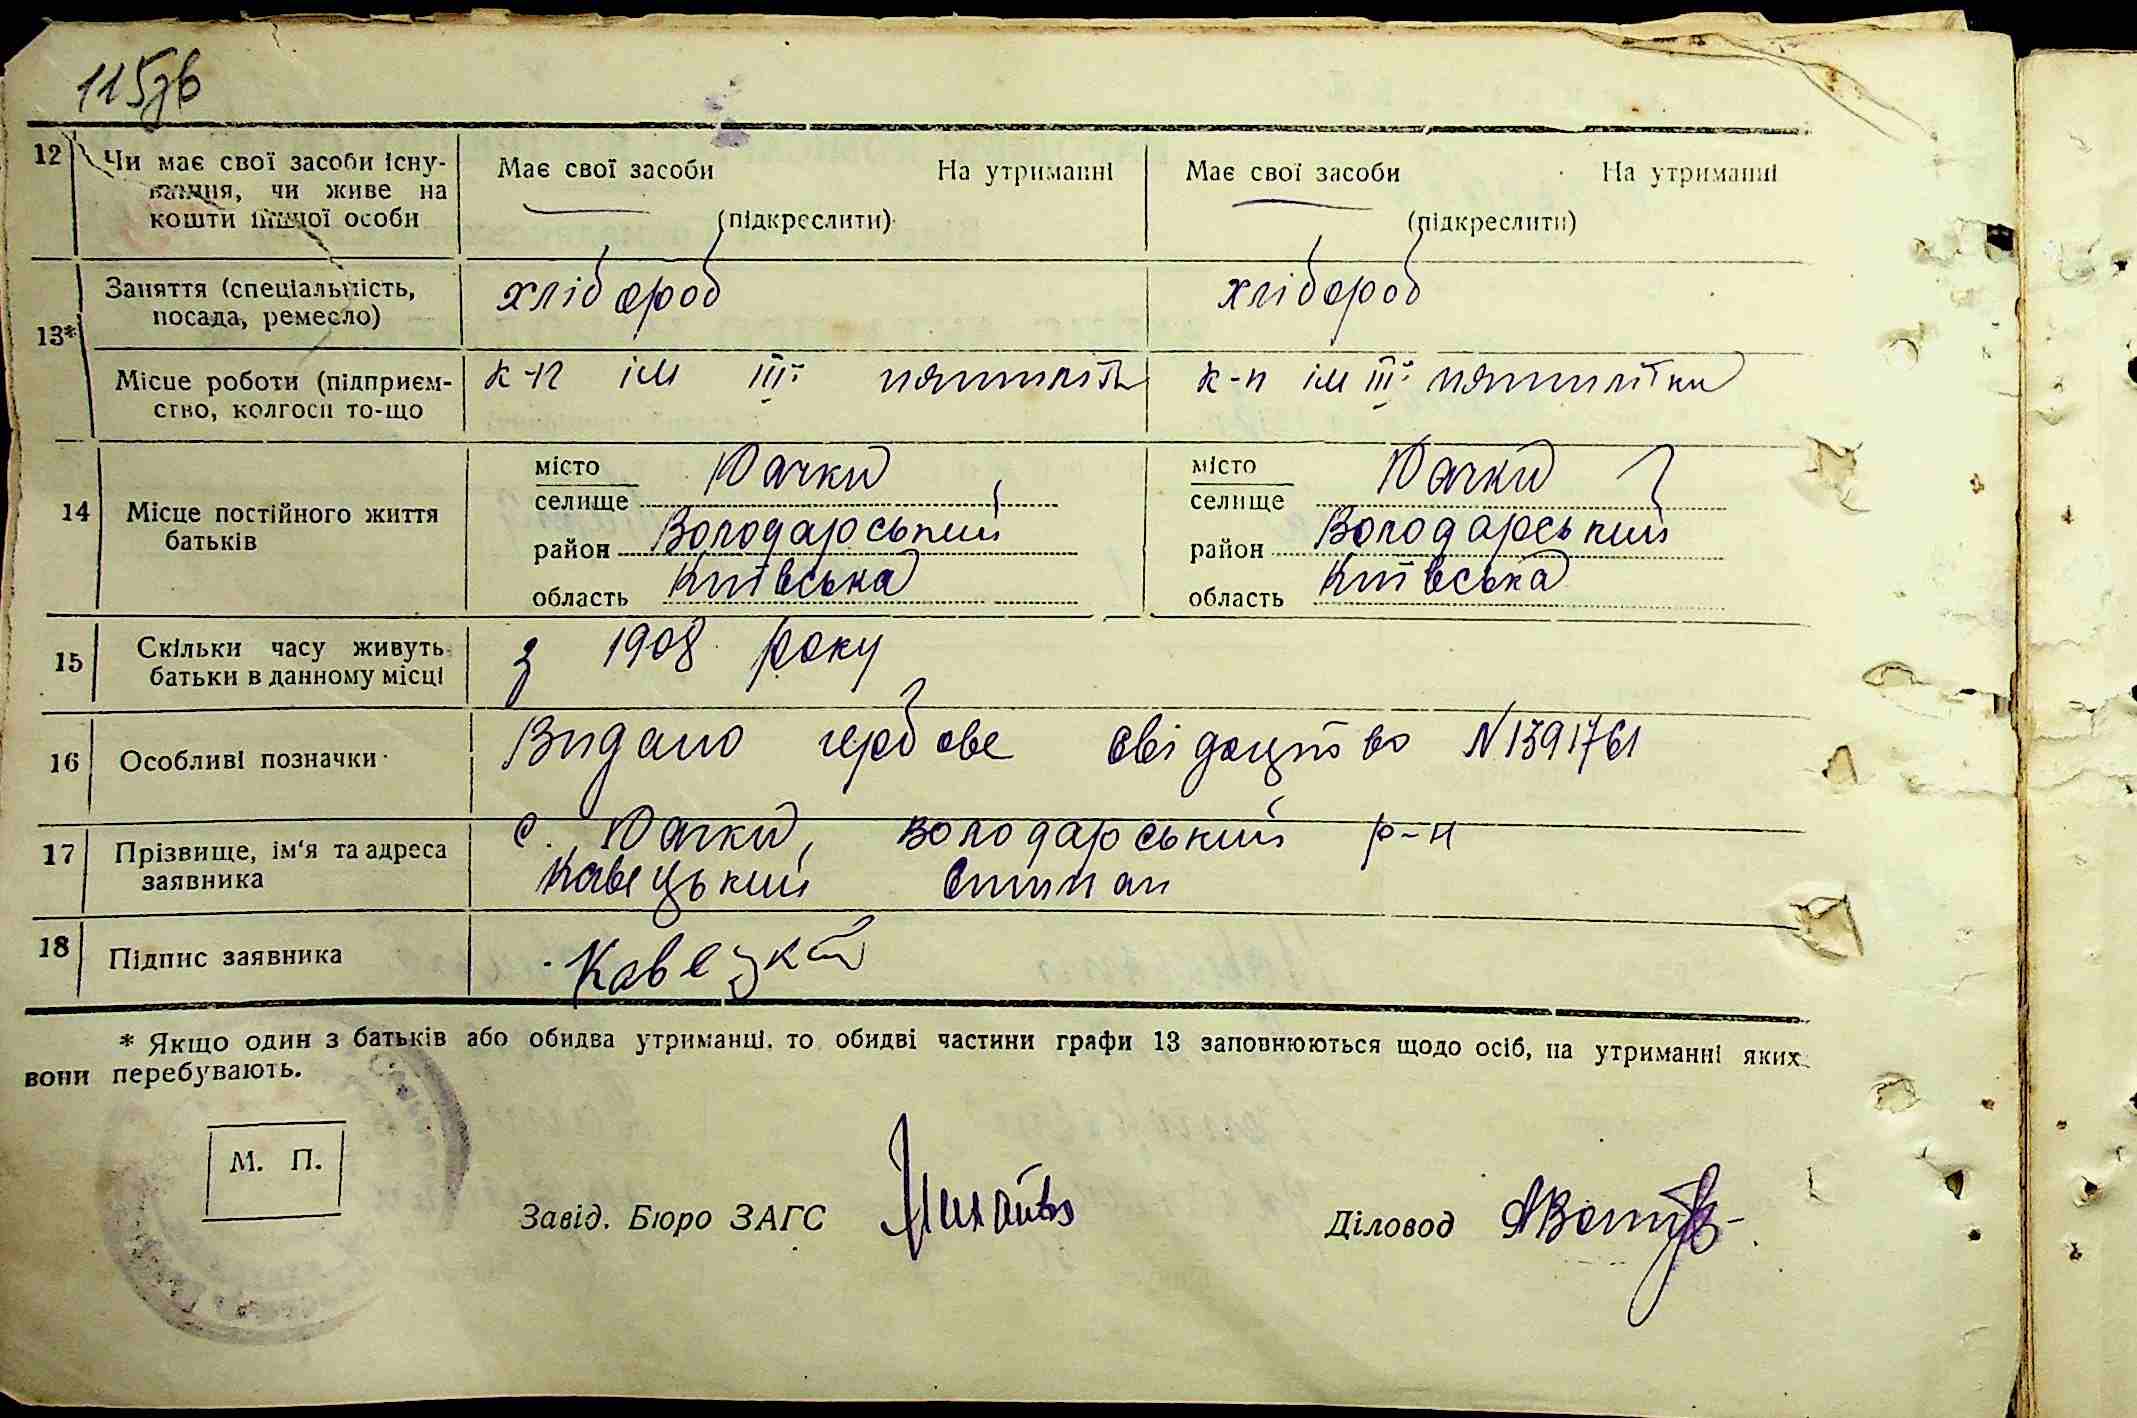 115зв
12 Чи має свої засоби існу-
вання, чи живе на
кошти іншої особи
Має свої засоби На утриманні
(підкреслити)
Має свої засоби На утриманні
(підкреслити)
13*
Заняття (спеціальність,
посада, ремесло)
хлібороб
хлібороб
Місце роботи (підприєм-
ство, колгосп то-що
к-п ім ІІІї пятиліт
к-п ім ІІІї пятилітки
14 Місце постійного життя
батьків
місто
селище Дачки
район Володарський
область Київська
місто
селище Дачки
район Володарський
область Київська
15 Скільки часу живуть
батьки в данному місці
з 1908 року
16 Особливі позначки
Видано гербове свідоцтво N1391761
17 Прізвище, ім'я та адреса
заявника
с. Дачки, Володарський р-н
Кавецький Степан
18 Підпис заявника
Кавецкий
* Якщо один з батьків або обидва утриманці, то обидві частини графи 13 заповнюються щодо осіб, на утриманні яких
вони перебувають.
М. П.
Завід. Бюро ЗАГС
Діловод